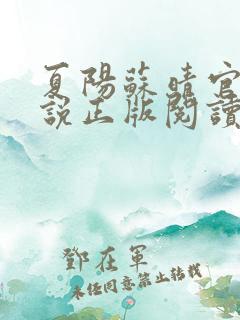 夏陽蘇晴官
說正版閱讀
鄧在軍
未經同意禁止轉載